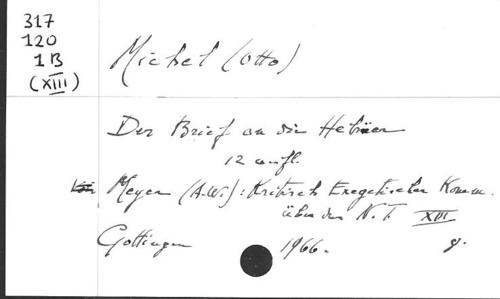 317
120
1B
(XIII)
Michel (Otto)
Der Brief an die Hebräer
12 aufl.
Meyer (A-W.): Kritisch Exegetischer Komm.
über das N.T. XIII
Gottingen 1966. g.